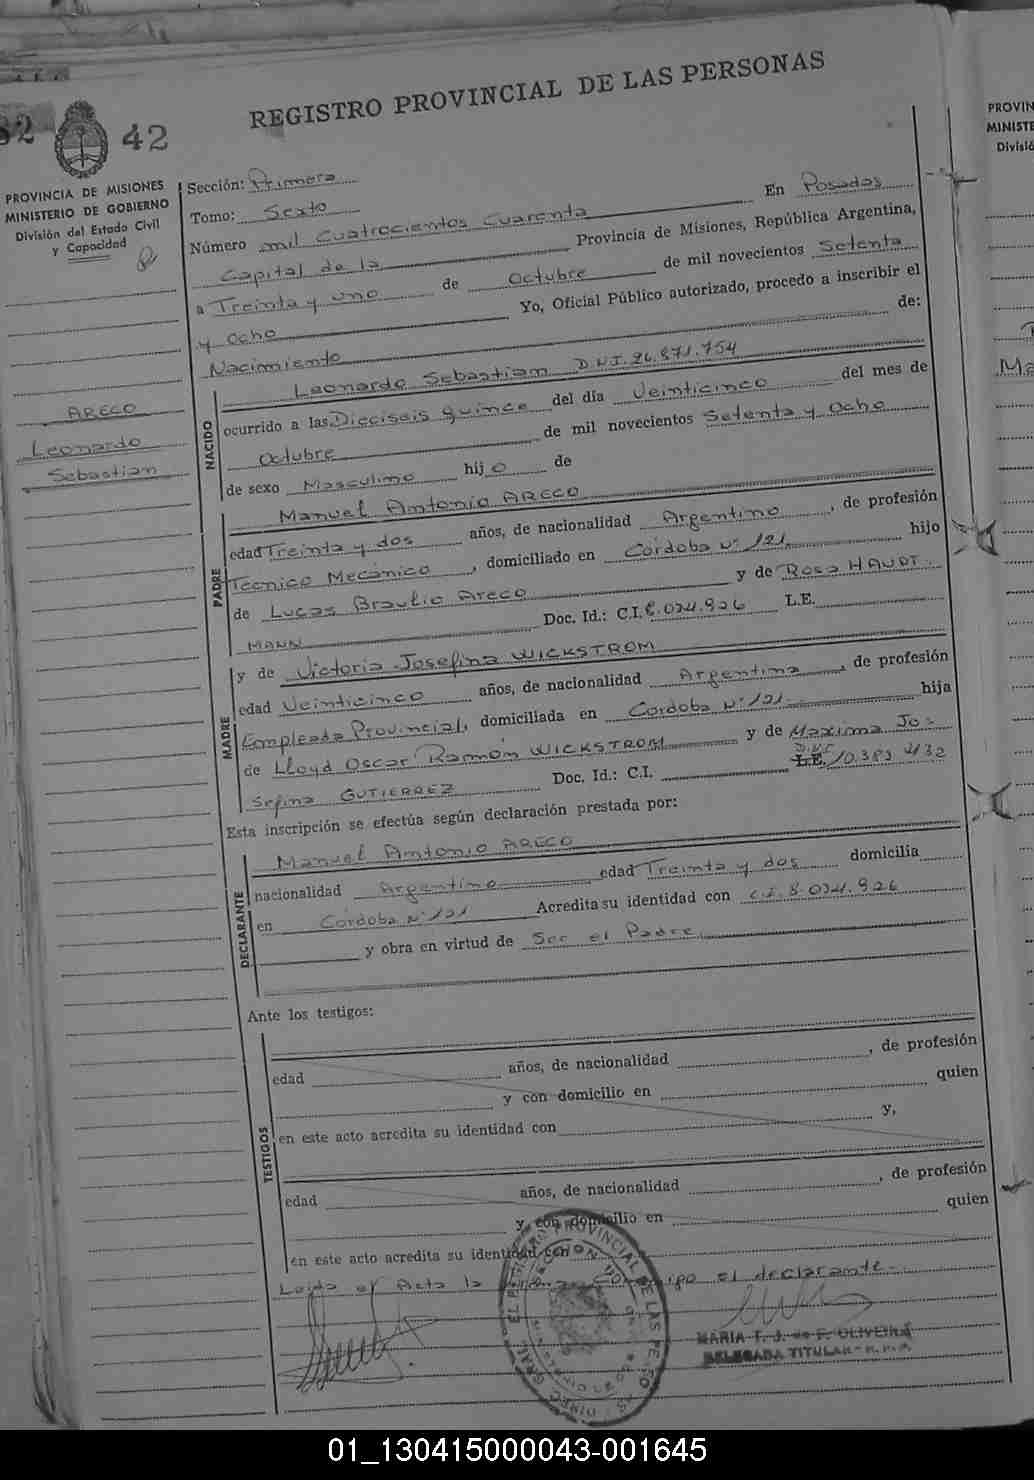 REGISTRO PROVINCIAL DE LAS PERSONAS
42
PROVINCIA DE MISIONES
MINISTERIO DE GOBIERNO
División del Estado Civil
y Capacidad
Sección: Primera
Tomo: Sexto
En Posadas
Número mil Cuatrocientos Cuarenta
Capital de la Provincia de Misiones, República Argentina,
a Treinta y uno de Octubre de mil novecientos Setenta
y Ocho Yo, Oficial Público autorizado, procedo a inscribir el
Nacimiento de:
ARECO
Leonardo
Sebastian
NACIDO
Leonardo Sebastian D.N.I. 26.871.754
ocurrido a las Dieciseis quince del día Veinticinco del mes de
Octubre de mil novecientos Setenta y Ocho
de sexo Masculino hijo de
PADRE
Manuel Antonio ARECO
edad Treinta y dos años, de nacionalidad Argentino, de profesión
Técnico Mecánico, domiciliado en Córdoba Nº 121 hijo
de Lucas Braulio Areco y de Rosa HAUPT-
MANN Doc. Id.: C.I. 8.034.926 L.E.
MADRE
y de Victoria Josefina WICKSTROM
edad Veinticinco años, de nacionalidad Argentina, de profesión
Empleada Provincial, domiciliada en Córdoba Nº 121 hija
de Lloyd Oscar Ramón WICKSTROM y de Maxima Jo-
sefina GUTIERREZ Doc. Id.: C.I. L.E. D.N.I. 10.383.432
Esta inscripción se efectúa según declaración prestada por:
DECLARANTE
Manuel Antonio ARECO
nacionalidad Argentino edad Treinta y dos domicilia
en Córdoba Nº 121 Acredita su identidad con C.I. 8.034.926
y obra en virtud de Ser el Padre
Ante los testigos:
TESTIGOS
edad años, de nacionalidad , de profesión
y con domicilio en quien
en este acto acredita su identidad con y,
edad años, de nacionalidad , de profesión
y con domicilio en quien
en este acto acredita su identidad con
Leida el Acta la firma Conmigo el declarante.-
MARIA T. J. de F. OLIVEIRA
DELEGADA TITULAR - R. P. P.
PROVIN
MINISTE
Divisió
01_130415000043-001645